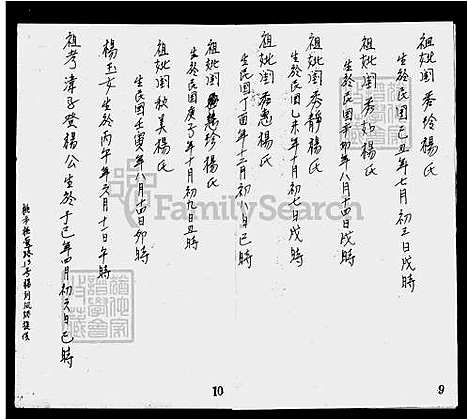 祖妣閨秀玲楊氏
生於民國己丑年七月初三日戌時
祖妣閨秀如楊氏
生於民國辛卯年八月十四日戌時
祖妣閨秀靜楊氏
生於民國乙未年十月初七日戌時
祖妣閨秀惠楊氏
生於民國丁酉年十二月初八日巳時
祖妣閨慧珍楊氏
生於民國庚子年十月初九日丑時
祖妣閨秋美楊氏
生民國壬寅年八月十四日卯時
楊玉女生於丙午年六月十一日午時
祖考諱子登楊公生於丁巳年四月初六日巳時
10
9
FamilySearch